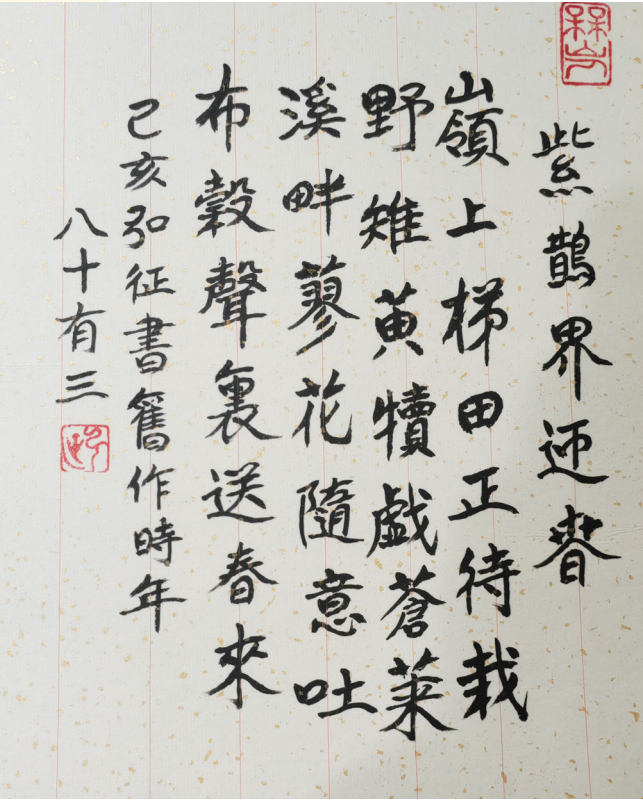 紫鵲界迎春
嶺上梯田正待栽
野雉黄犢戲蒼萊
溪畔蓼花隨意吐
布穀聲裏送春來
己亥弘征書舊作時年
八十有三